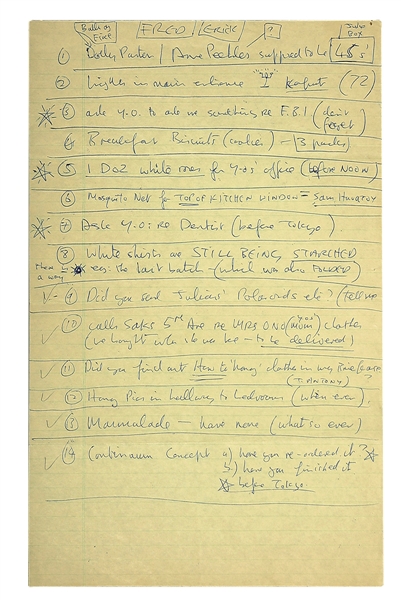 Balls of Fire
FRED / ERICK ?
Juke Box
① Dolly Parton / Ann Peebles supposed to be 45s'
② Lights in main entrance is Kaput (72)
③ ask Y.O. to ask me something re F.B.I (don't forget)
④ Breakfast Biscuits (cookies) — 3 packs
⑤ 1 DOZ white roses for Y.O's office (before NOON)
⑥ Mosquito Net for TOP OF KITCHEN WINDOW =
⑦ Ask Y.O: re Dentist (before Tokyo)
⑧ White shirts are STILL BEING STARCHED
eg: the last batch — (which was also FOLDED)
there is a way
⑨ Did you send Julians' Polaroids etc? (tell me
⑩ call Saks 5TH Ave re MRS ONO (MOM) clothes
(we bought when she was here — to be delivered)
⑪ Did you find out How to 'hang' clothes in
⑫ Hang Pics in hallway to bedroom (when ever)
⑬ Marmalade — have none (what so ever)
⑭ Continuum Concept a) have you re-ordered it?
b) have you finished it
before Tokyo